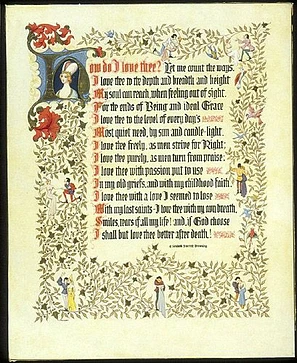 How do I love thee? Let me count the ways.
I love thee to the depth and breadth and height
My soul can reach, when feeling out of sight.
For the ends of Being and ideal Grace
I love thee to the level of every day's
Most quiet need, by sun and candle-light.
I love thee freely, as men strive for Right,
I love thee purely, as men turn from praise:
I love thee with passion put to use
In my old griefs, and with my childhood faith:
I love thee with a love I seemed to lose
With my last saints-I love thee with my own breath,
Smiles, tears of all my life! and if God choose
I shall but love thee better after death!
Elizabeth Barrett Browning